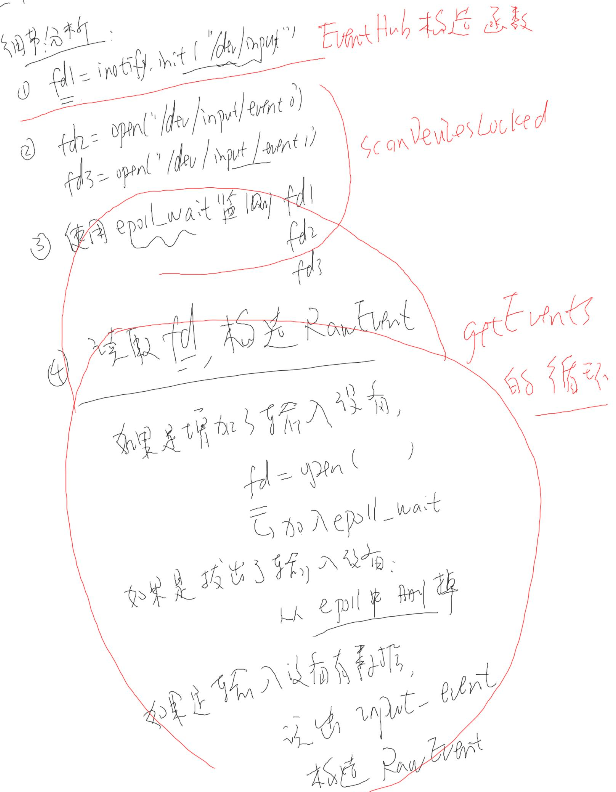 细节分析:
① fd1 = inotify_init("/dev/input") EventHub构造函数
② fd2 = open("/dev/input/event0)
fd3 = open("/dev/input/event1)
scanDevicesLocked
③ 使用epoll_wait监测 fd1
fd2
fd3
④ 读取fd, 构造RawEvent
getEvents
的循环
如果是增加了输入设备,
fd = open( )
加入epoll_wait
如果是拔出了输入设备:
从epoll中删掉
如果是输入设备有数据,
读出 input_event
构造 RawEvent